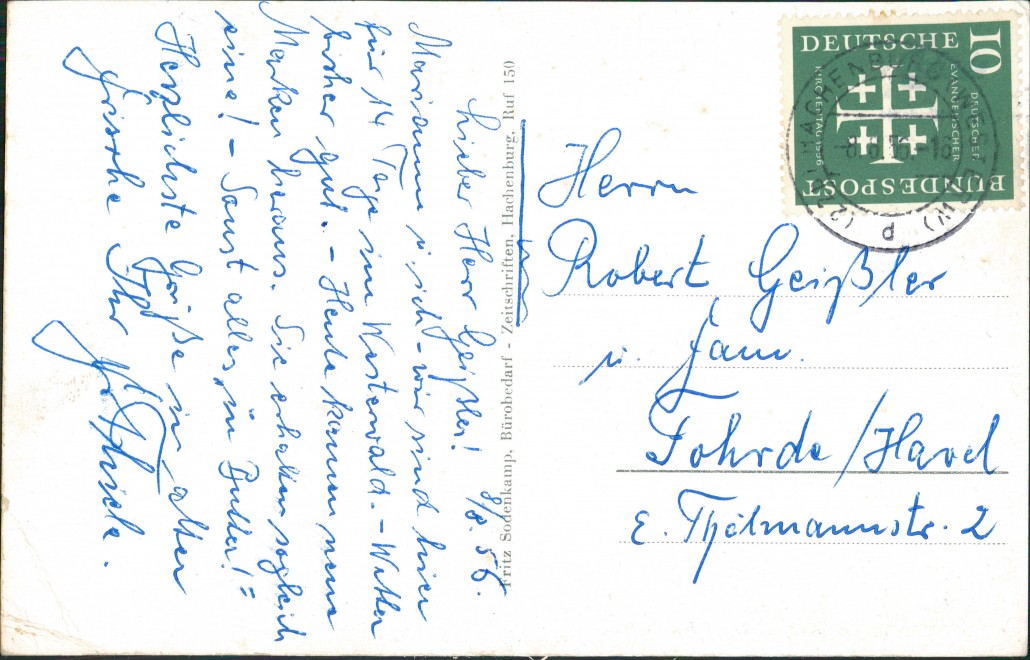 8/8. 56.
Lieber Herr Geißler!
Marianne u. ich – wir sind hier
für 14 Tage im Westerwald. – Wetter
bisher gut. – Heute kamen neue
Marken heraus. Sie erhalten sogleich
eine! – Sonst alles „in Butter“! =
Herzlichste Grüße in alter
Frische Ihr
Fritz Sodenkamp, Bürobedarf - Zeitschriften, Hachenburg, Ruf 150
Herrn
Robert Geißler
u. Fam.
Fohrde / Havel
E. Thälmannstr. 2
DEUTSCHE
BUNDESPOST
10
DEUTSCHER
EVANGELISCHER
KIRCHENTAG 1956
HACHENBURG